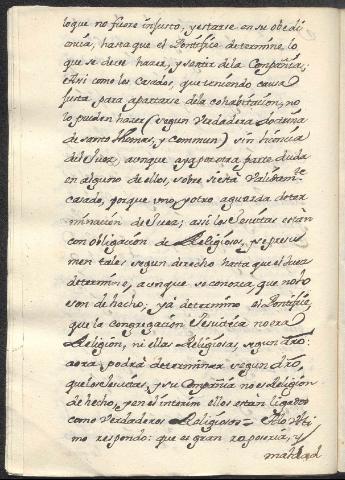 loque no fuere injusto, y estarse en su obedi
encia, hasta que el Pontifice determine, lo
que se deve hacer, y sentir dela Compañia;
Asi como los Casados, que teniendo causa
justa para apartarse dela cohabitacion, no
lo pueden hacer (segun Verdadera doctrina
de santo Thomas, y commun) sin licencia
del Juez, aunque aya por otra parte duda
en alguno de ellos, sobre si està Validamte
Casado, porque uno, y otro aguarda deter
minacion de Juez; asi los Jesuitas estàn
con obligacion de Religiosos, y se presu
men tales segun derecho hasta que el Juez
determine, aunque se conozca, que no lo
son de hecho; yà determino el Pontifice,
que la Congregacion Jesuitica no era
Religion, ni ellas Religiosas segun dro:
aora podrà determinar segun dro,
que los Jesuitas, y su Compañia no es Religion
de hecho, y en el interim ellos estàn ligados
como Verdaderos Religiosos = Alo Ulti
mo respondo: que es gran raposeria, y
maldad